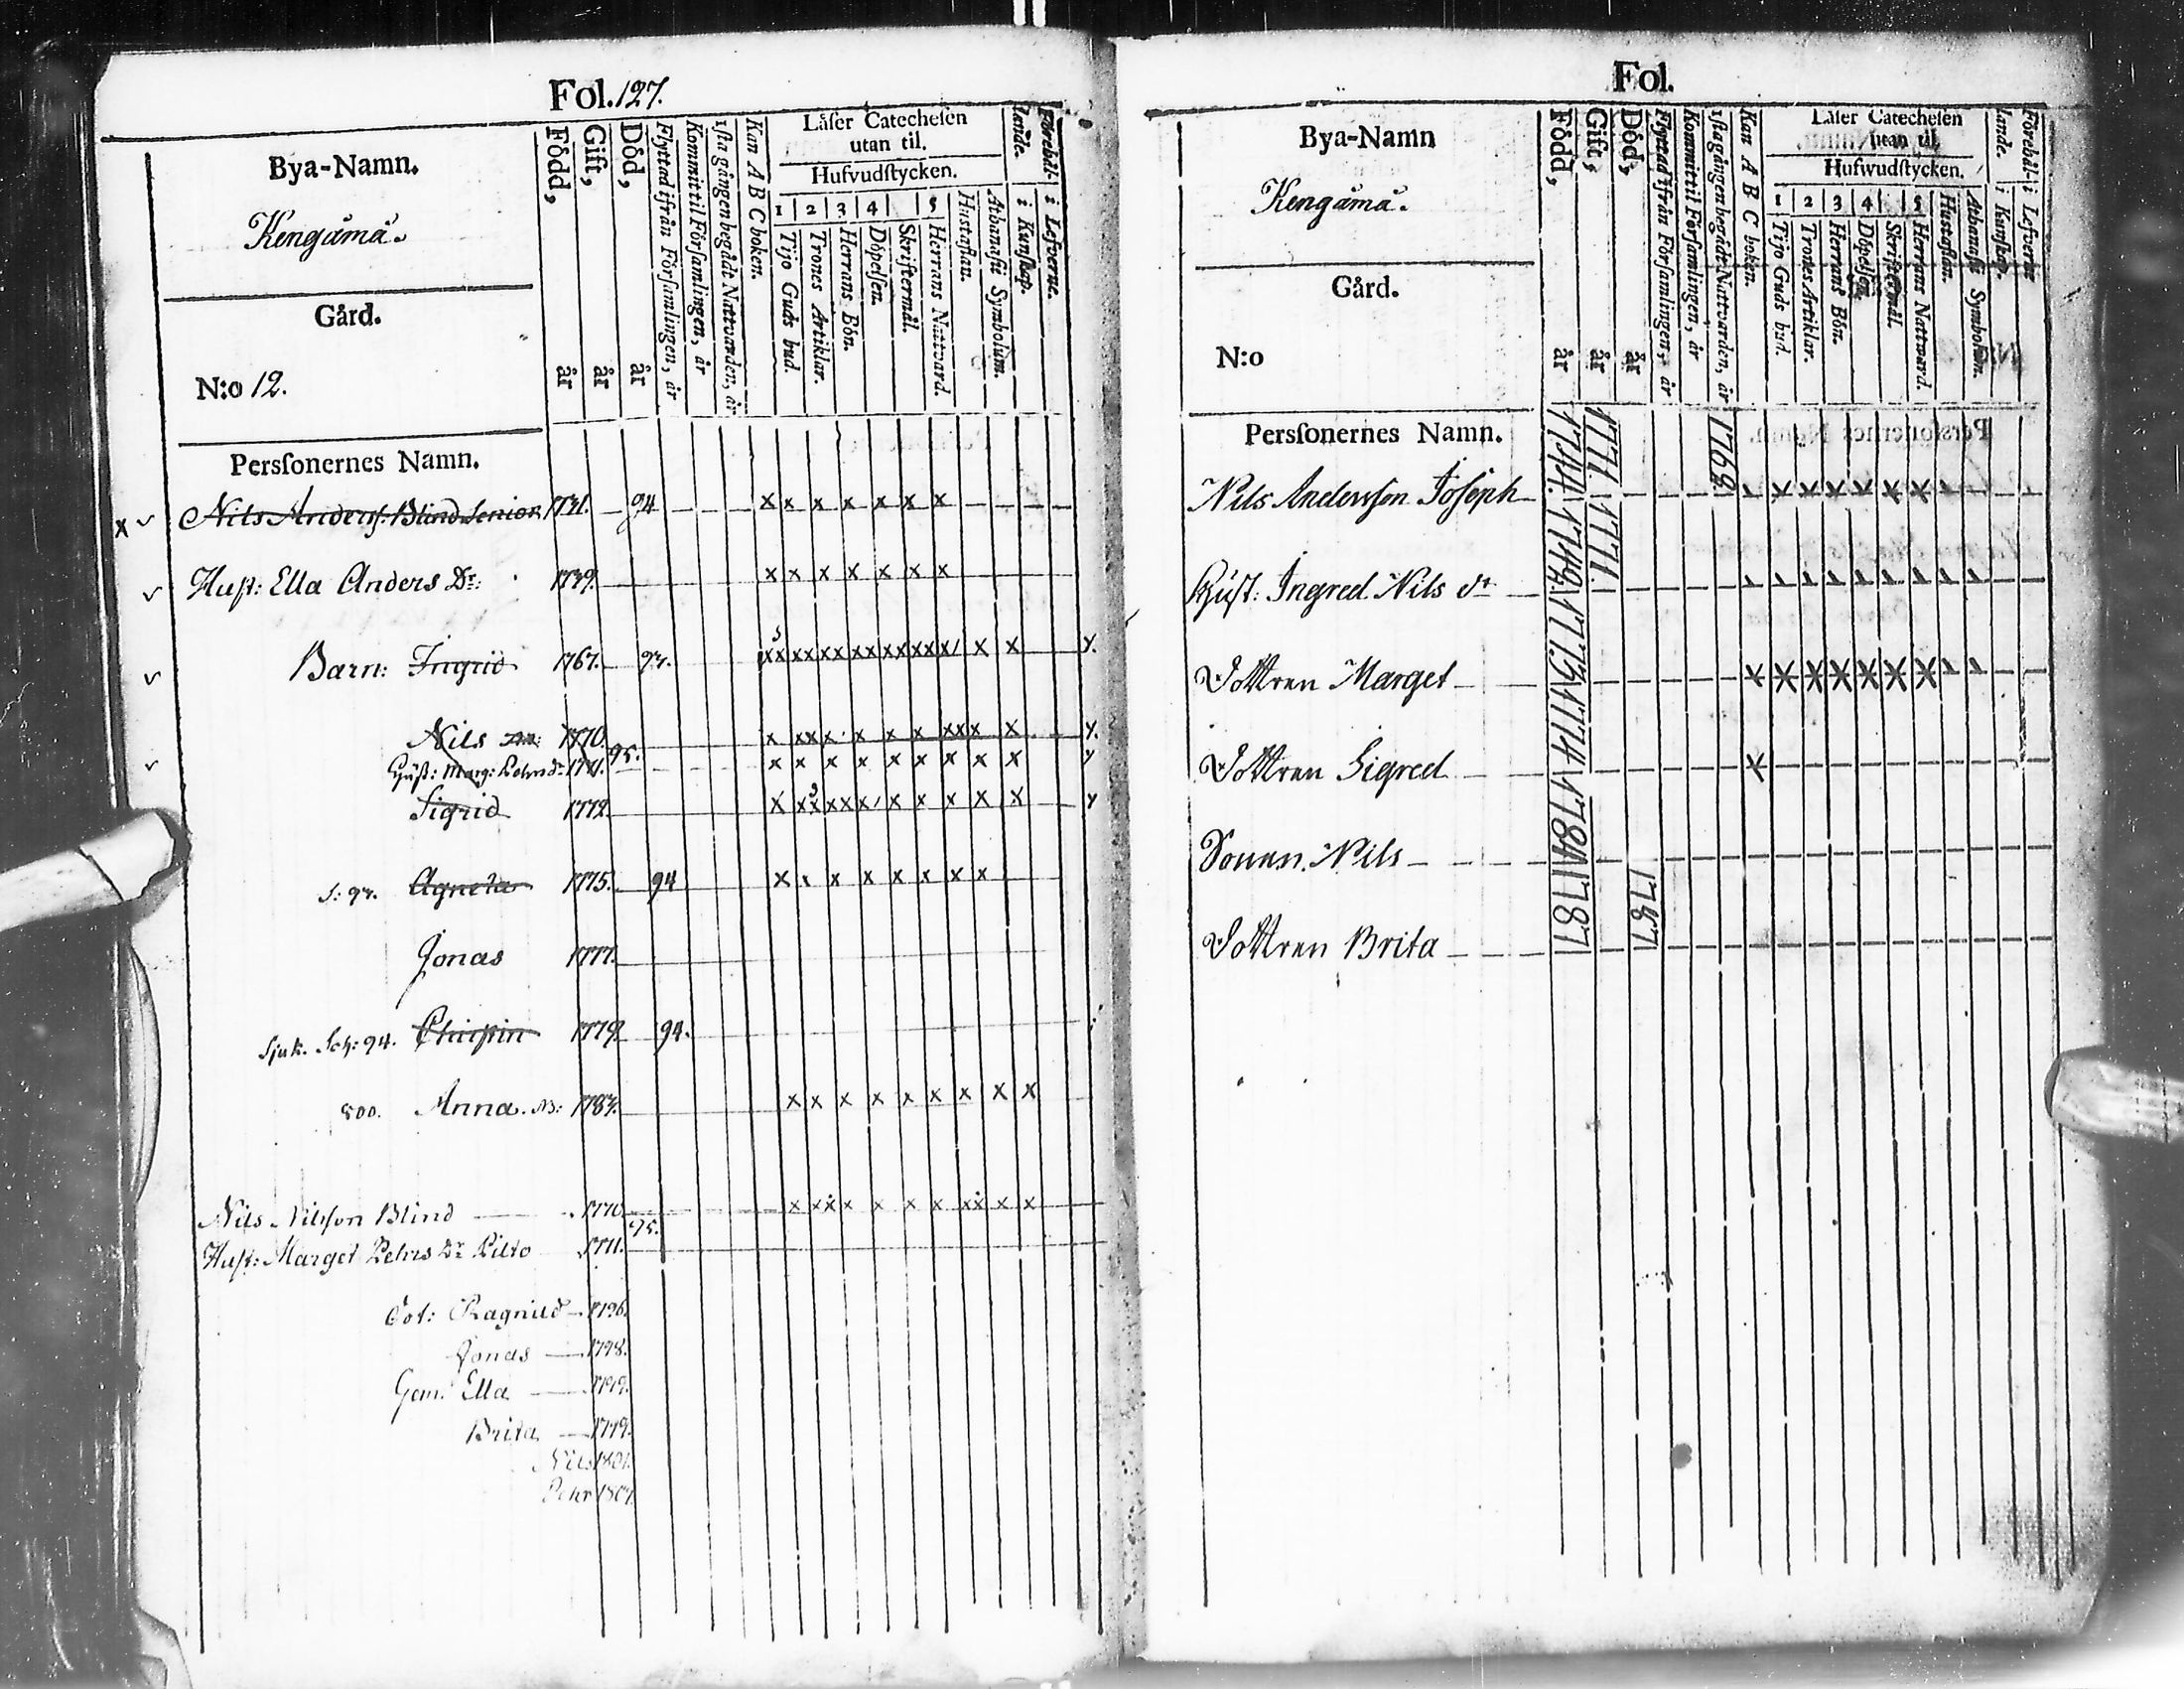 Fol. 127.
Bya-Namn.
Kengämä.
Gård.
N:o 12.
Persſonernes Namn.
Född, år
Gift, år
Död, år
Flyttad ifrån Förſamlingen, år
Kommit til Förſamlingen, år
1ſta gången begådt Nattvarden, år
Kan A B C boken.
Läſer Catecheſen
utan til.
Hufvudſtycken.
1 2 3 4 5
Tijo Guds bud.
Trones Artiklar.
Herrans Bön.
Döpelſen.
Skriftermål.
Herrans Nattvard.
Huſtaflan.
Athanaſii Symbolum.
Förehål-
lande.
i Kunſkap.
i Lefverne.
x Nils Anderſ. Blind Senior 1731. 94 x x x x x x x
Huſt: Ella Anders Dr: 1739. x x x x x x x
Barn: Ingrid 1767.
Nils 1770. 95.
Huſt: Marg: Pehrs dr 1771.
Sigrid 1772.
Agneta 1775. 94 x x x x x x x
Jonas 1777.
Sjuk. 94. 1779. 94.
800. Anna. 1783. x x x x x x x x x
Nils Nilsſon Blind 1770. 95.
Huſt: Marget Pehrs Dr Pilto 1771.
Dot: Ragnild 1796.
Jonas 1798.
Gem. Ella 1799.
Brita 1799.
Nils 1801.
Pehr 1807.
Fol.
Bya-Namn
Kengämä.
Gård.
N:o
Persſonernes Namn.
Född, år
Gift, år
Död, år
Flyttad ifrån Förſamlingen, år
Kommit til Förſamlingen, år
1ſta gången begådt Nattvarden, år
Kan A B C boken.
Läſer Catecheſen
utan til.
Hufwudſtycken.
1 2 3 4 5
Tijo Guds bud.
Trones Artiklar.
Herrans Bön.
Döpelſen.
Skriftermål.
Herrans Natward.
Huſtaflan.
Athanaſii Symbolum.
Förehål-
lande.
i Kunſkap.
i Lefverne
Nils Andersſon Joſeph 1744. 1771 1762.
Huſt: Ingred Nils dr 1749. 1771.
Dottren Marget 1773
Dottren Sigred 1774
Sonen Nils 1784
Dottren Brita 1787 1787